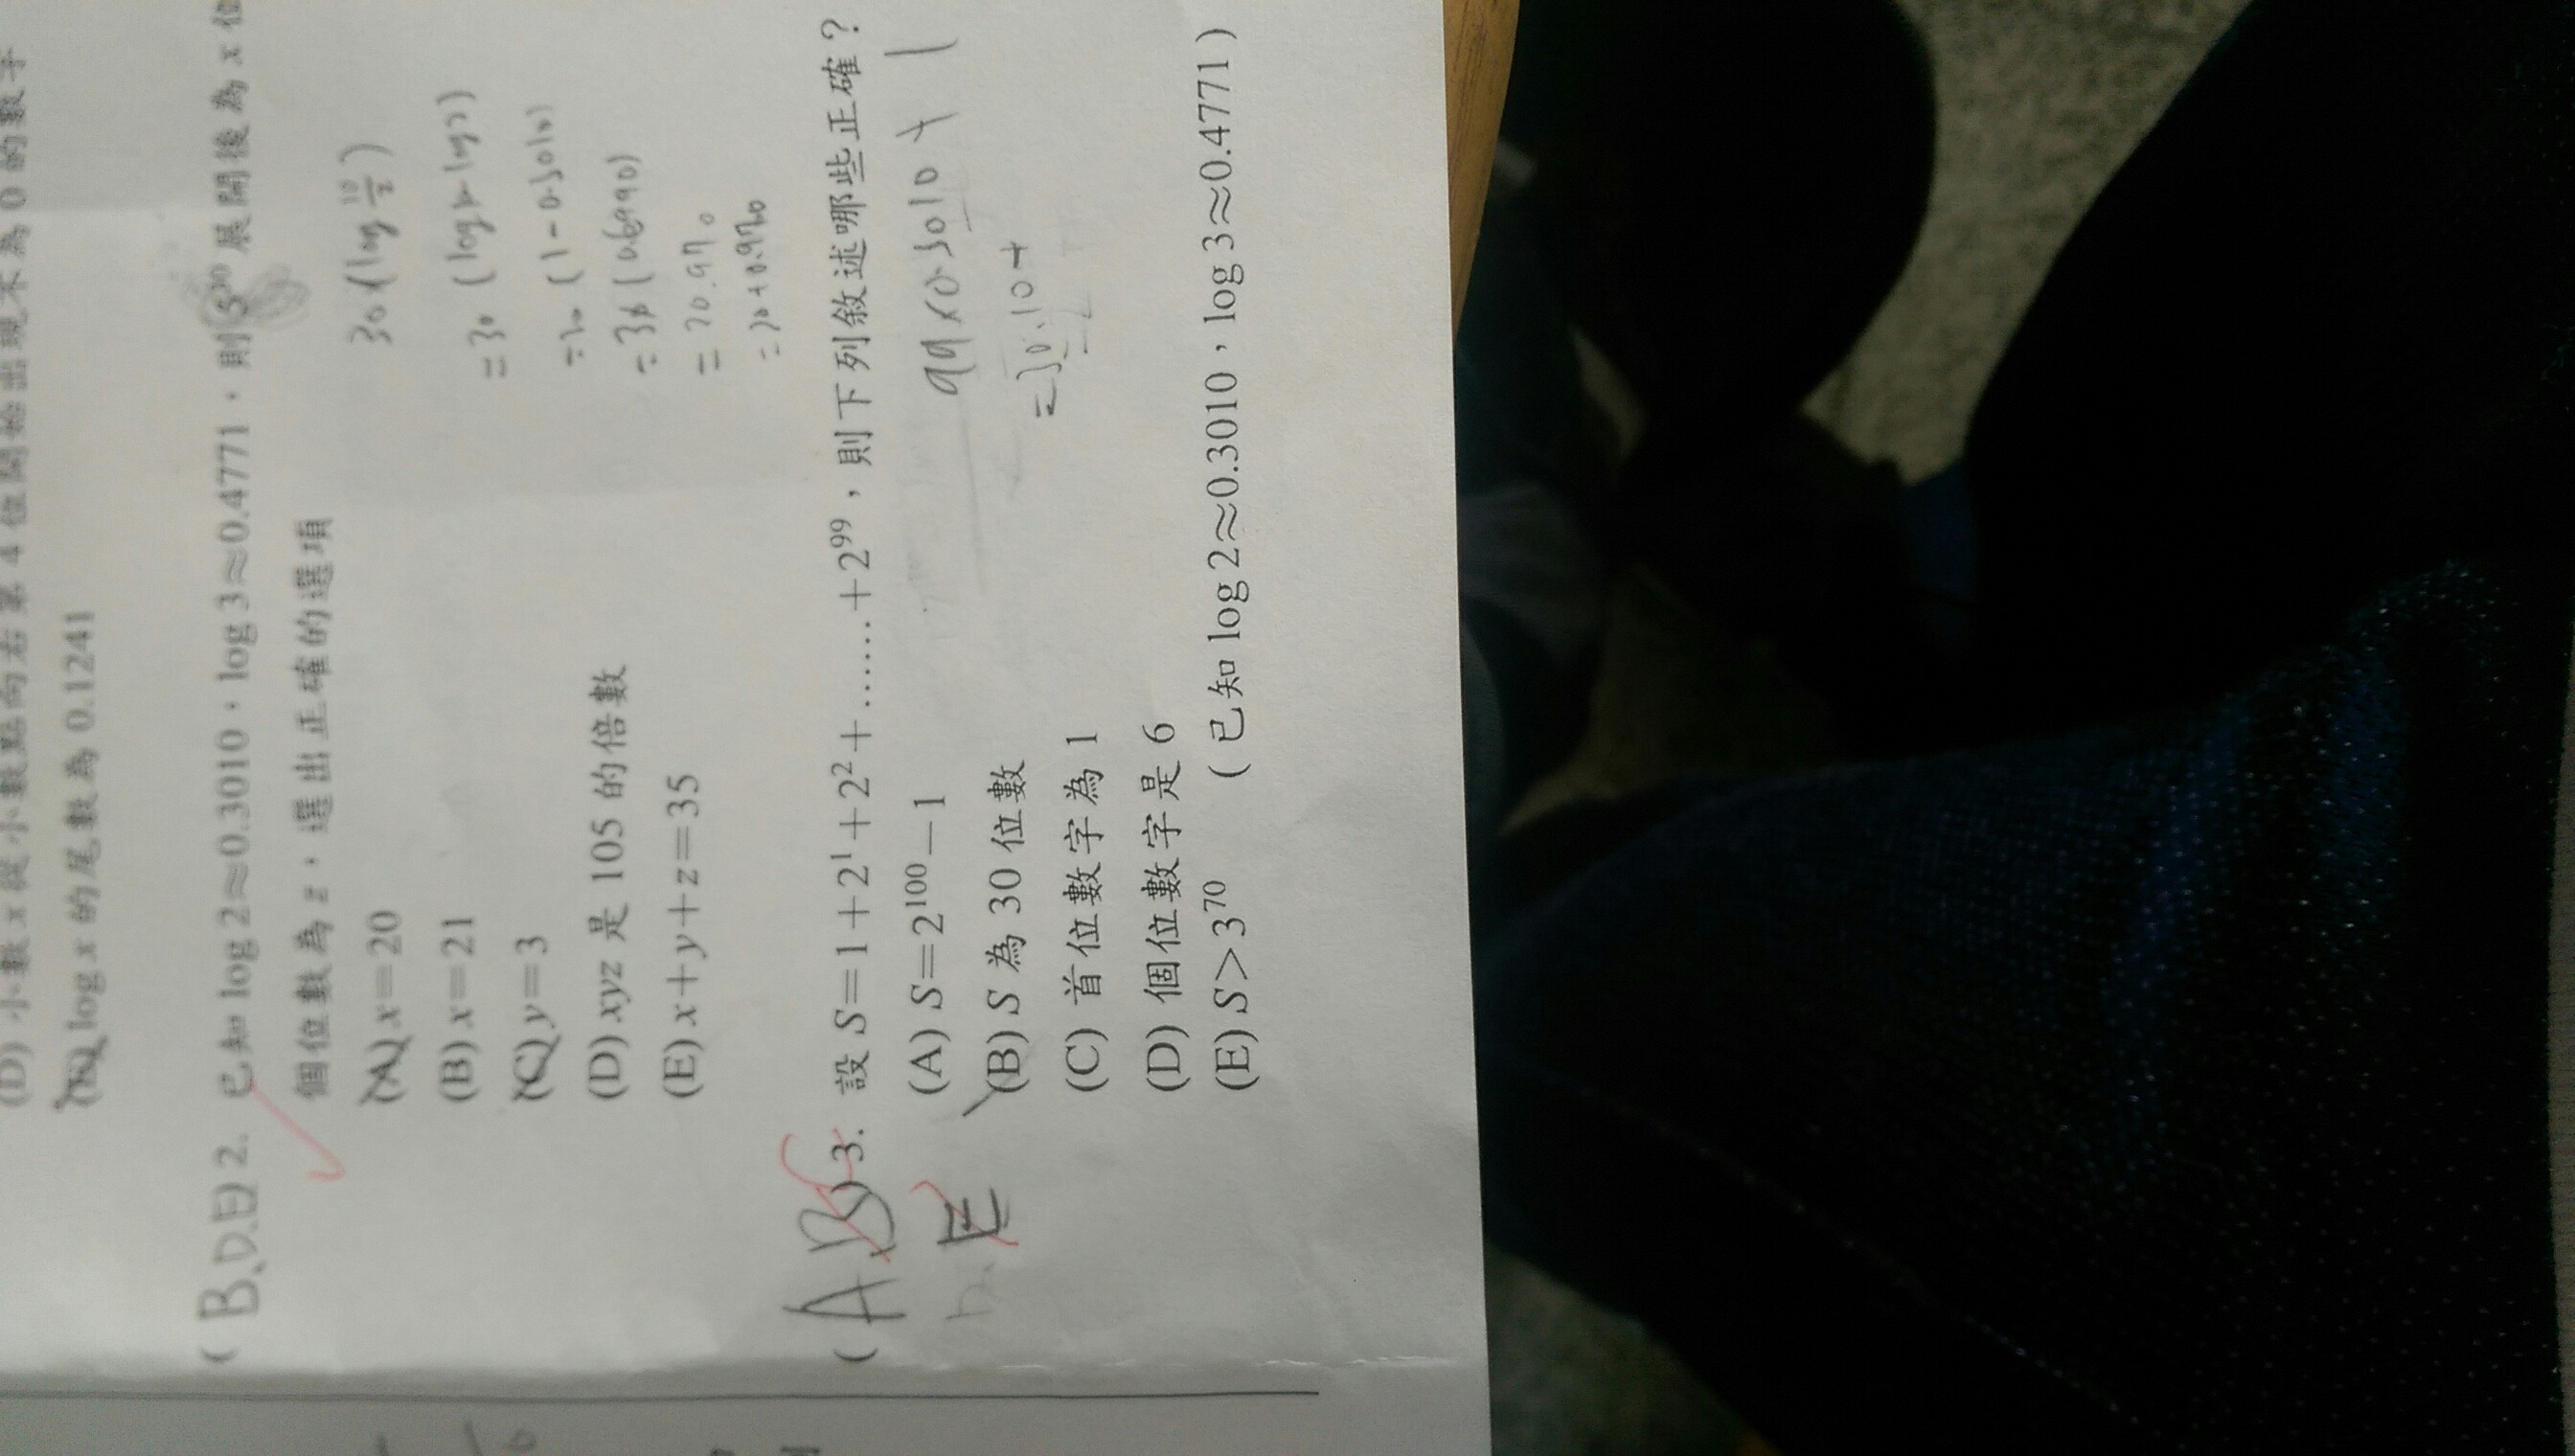 (D) 小數 x 從小數點向右第 4 位開始出現不為 0 的數字
(E) log x 的尾數為 0.1241
( B.D.E ) 2. 已知 log 2≈0.3010,log 3≈0.4771,則 5³⁰ 展開後為 x 位
個位數為 z,選出正確的選項
(A) x=20
(B) x=21
(C) y=3
(D) xyz 是 105 的倍數
(E) x+y+z=35
30 (log 10/2)
=30 (log10-log2)
=30 (1-0.3010)
=30 (0.6990)
=20.970
=20+0.970
( A B ) 3. 設 S=1+2¹+2²+……+2⁹⁹,則下列敘述哪些正確?
E
(A) S=2¹⁰⁰−1
(B) S 為 30 位數
(C) 首位數字為 1
(D) 個位數字是 6
(E) S>3⁷⁰ (已知 log 2≈0.3010,log 3≈0.4771)
99×0.3010+1